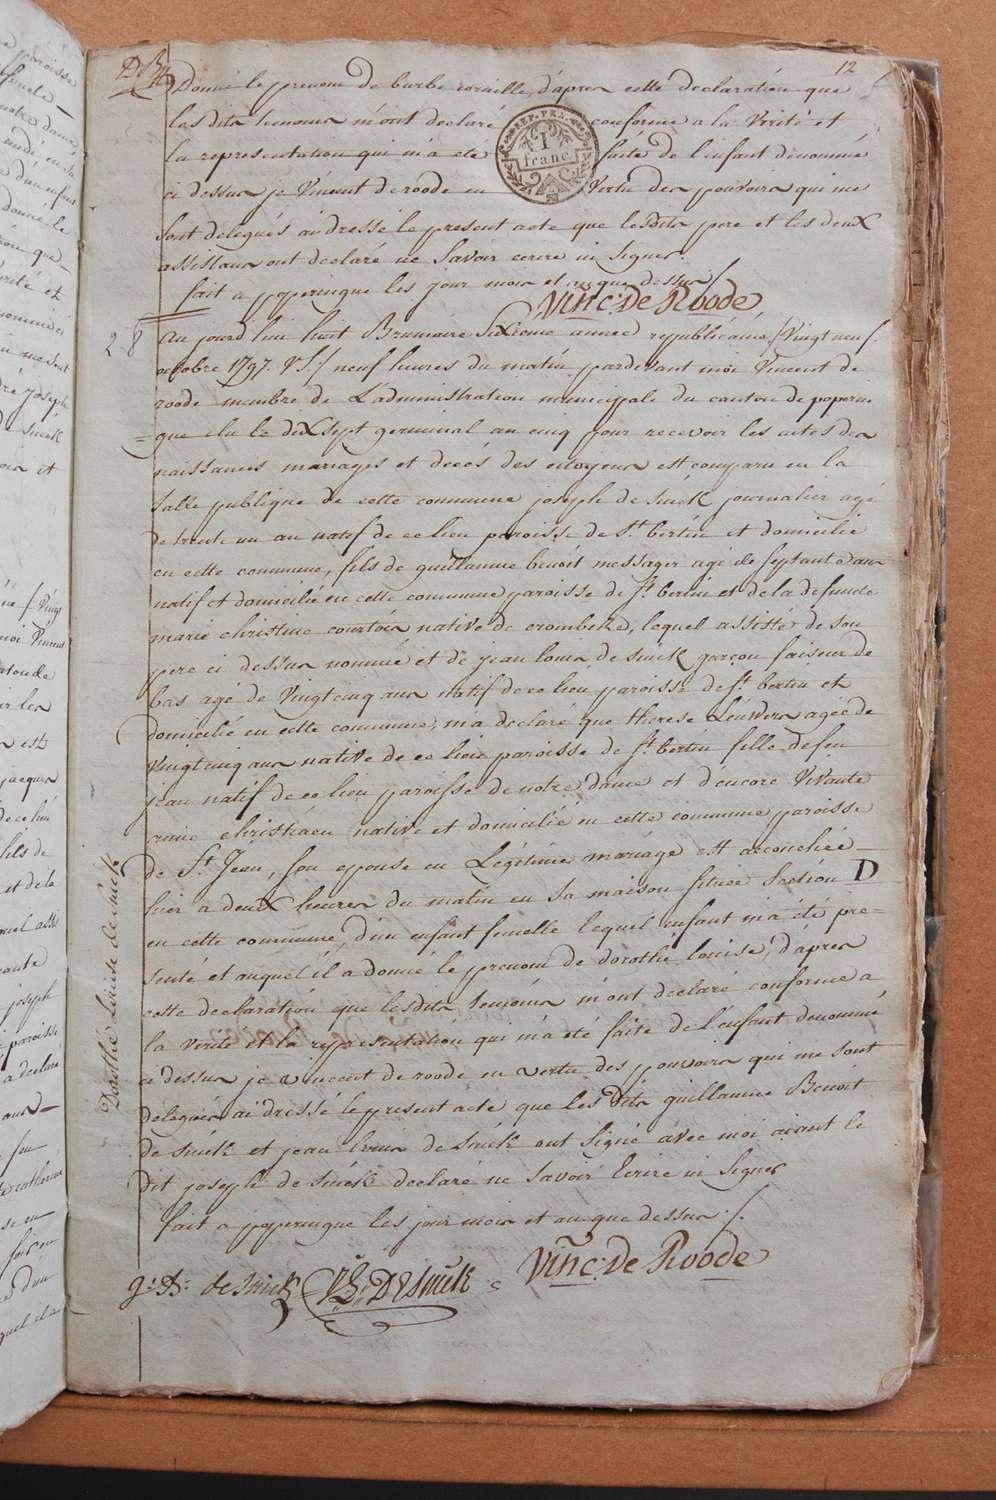 12
Donné le prenom de barbe coraille, d'apres cette declaration que
lesdits temoins m'ont declaré conforme a la Verité et
la representation qui m'a eté faite de l'enfant denommé
ci dessus je Vincent de roode en Vertu des pouvoirs qui me
sont delegués ai dressé le present acte que lesdits pere et les deux
assistans ont declaré ne Savoir ecrire ni signer.
fait a poperingue les jour mois et an que dessus /.
Vinc: De Roode
REP. FRA.
1
franc
28
Au jourd'hui huit Brumaire Sixieme année republicaine / Vingt neuf
octobre 1797. V.S./ neuf heures du matin pardevant moi Vincent de
roode membre de L'administration municipale du canton de poperin
=gue élu le dix sept germinal an cinq pour recevoir les actes des
naissances mariages et decés des citoyens est comparu en la
Salle publique de cette commune joseph de Sinck journalier agé
de trente un an natif de ce lieu paroisse de St. bertin et domicilié
en cette commune, fils de guillaume benoit messager agé de septante ans
natif et domicilié en cette commune paroisse de St bertin et de la defunte
marie christine courtois native de crombeke, lequel assisté de son
pere ci dessus nommé et de jean louis de Sinck garçon faiseur de
bas agé de Vingtcinq ans natif de ce lieu paroisse de St. bertin et
domicilié en cette commune, m'a declaré que therese Leuwers agée de
Vingtcinq ans native de ce lieu paroisse de St bertin fille de feu
jean natif de ce lieu paroisse de notre dame et d'encore Vivante
anne christiaen native et domicilié en cette commune paroisse
de St. Jean, son epouse en Légitime mariage est accouchée
hier a deux heures du matin en sa maison située Section D
en cette commune, d'un enfant femelle lequel enfant m'a été pre=
senté et auquel il a donné le prenom de dorothé louise, d'apres
cette declaration que lesdits temoins m'ont declaré conforme a
la verité et la representation qui m'a été faite de l'enfant denommé
ci dessus je vincent de roode en vertu des pouvoirs qui me sont
delegués ai dressé le present acte que les Dits guillaume Benoit
de sinck et jean louis de Sinck ont Signé avec moi aiant le
dit joseph de sinck declaré ne Savoir Ecrire ni signer
fait a poperingue les jour mois et an que dessus /.
Dorothé Louise de Sinck
g: B: de Sinck
DeSinck
Vinc: De Roode